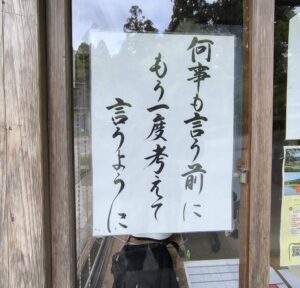 何事も言う前に
もう一度考えて
言うように